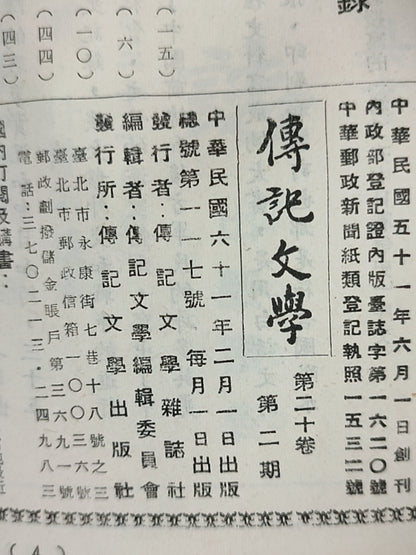 錄
中華民國五十一年六月一日創刊
內政部登記證內版臺誌字第一六二〇號
中華郵政新聞紙類登記執照一五三二號
傳記文學
第二十卷
第二期
中華民國六十一年二月一日出版
總號第一一七號 每月一日出版
發行者：傳記文學雜誌社
編輯者：傳記文學編輯委員會
發行所：傳記文學出版社
臺北市永康街七巷十八號之三
臺北市郵政信箱一〇〇三六號
郵政劃撥儲金賬戶第三六九一號
電話：三七〇二一三・二四九九八三
國內訂閱及購書：
（一五）
（六）
（一〇）
（四四）
（四三）
（4）